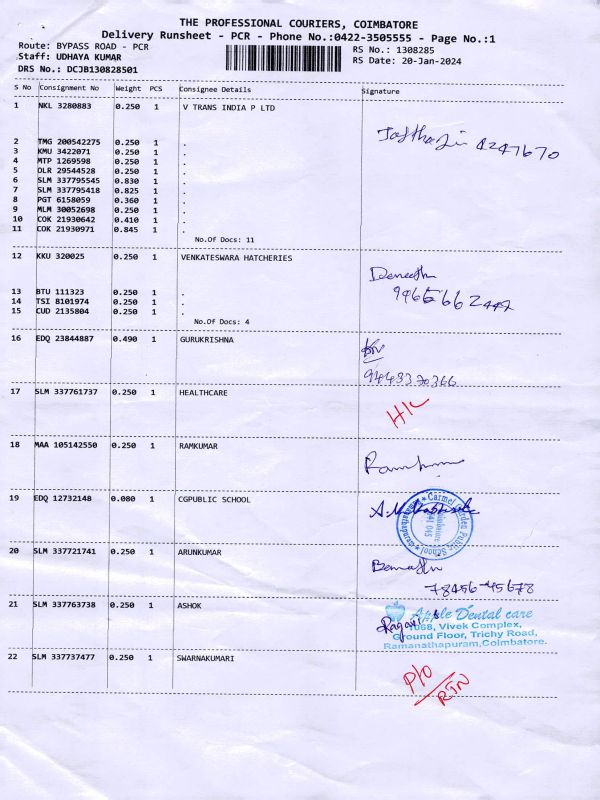 THE PROFESSIONAL COURIERS, COIMBATORE
Delivery Runsheet - PCR - Phone No.:0422-3505555 - Page No.:1
Route: BYPASS ROAD - PCR
RS No.: 1308285
Staff: UDHAYA KUMAR
RS Date: 20-Jan-2024
DRS No.: DCJB130828501
S No Consignment No Weight PCS Consignee Details Signature
1 NKL 3280883 0.250 1 V TRANS INDIA P LTD
4247670
2 TMG 200542275 0.250 1 .
3 KMU 3422071 0.250 1 .
4 MTP 1269598 0.250 1 .
5 DLR 29544528 0.250 1 .
6 SLM 337795545 0.830 1 .
7 SLM 337795418 0.825 1 .
8 PGT 6158059 0.360 1 .
9 MLM 30052698 0.250 1 .
10 COK 21930642 0.410 1 .
11 COK 21930971 0.845 1 .
No.Of Docs: 11
12 KKU 320025 0.250 1 VENKATESWARA HATCHERIES
13 BTU 111323 0.250 1 .
14 TSI 8101974 0.250 1 .
15 CUD 2135804 0.250 1 .
No.Of Docs: 4
16 EDQ 23844887 0.490 1 GURUKRISHNA
17 SLM 337761737 0.250 1 HEALTHCARE
H/L
18 MAA 105142550 0.250 1 RAMKUMAR
Ramkumar
19 EDQ 12732148 0.080 1 CGPUBLIC SCHOOL
Carmel Garden Public School
20 SLM 337721741 0.250 1 ARUNKUMAR
78456-45678
21 SLM 337763738 0.250 1 ASHOK
Apple Dental care
1068, Vivek Complex,
Ground Floor, Trichy Road,
Ramanathapuram,Coimbatore.
22 SLM 337737477 0.250 1 SWARNAKUMARI
P/O
RTN